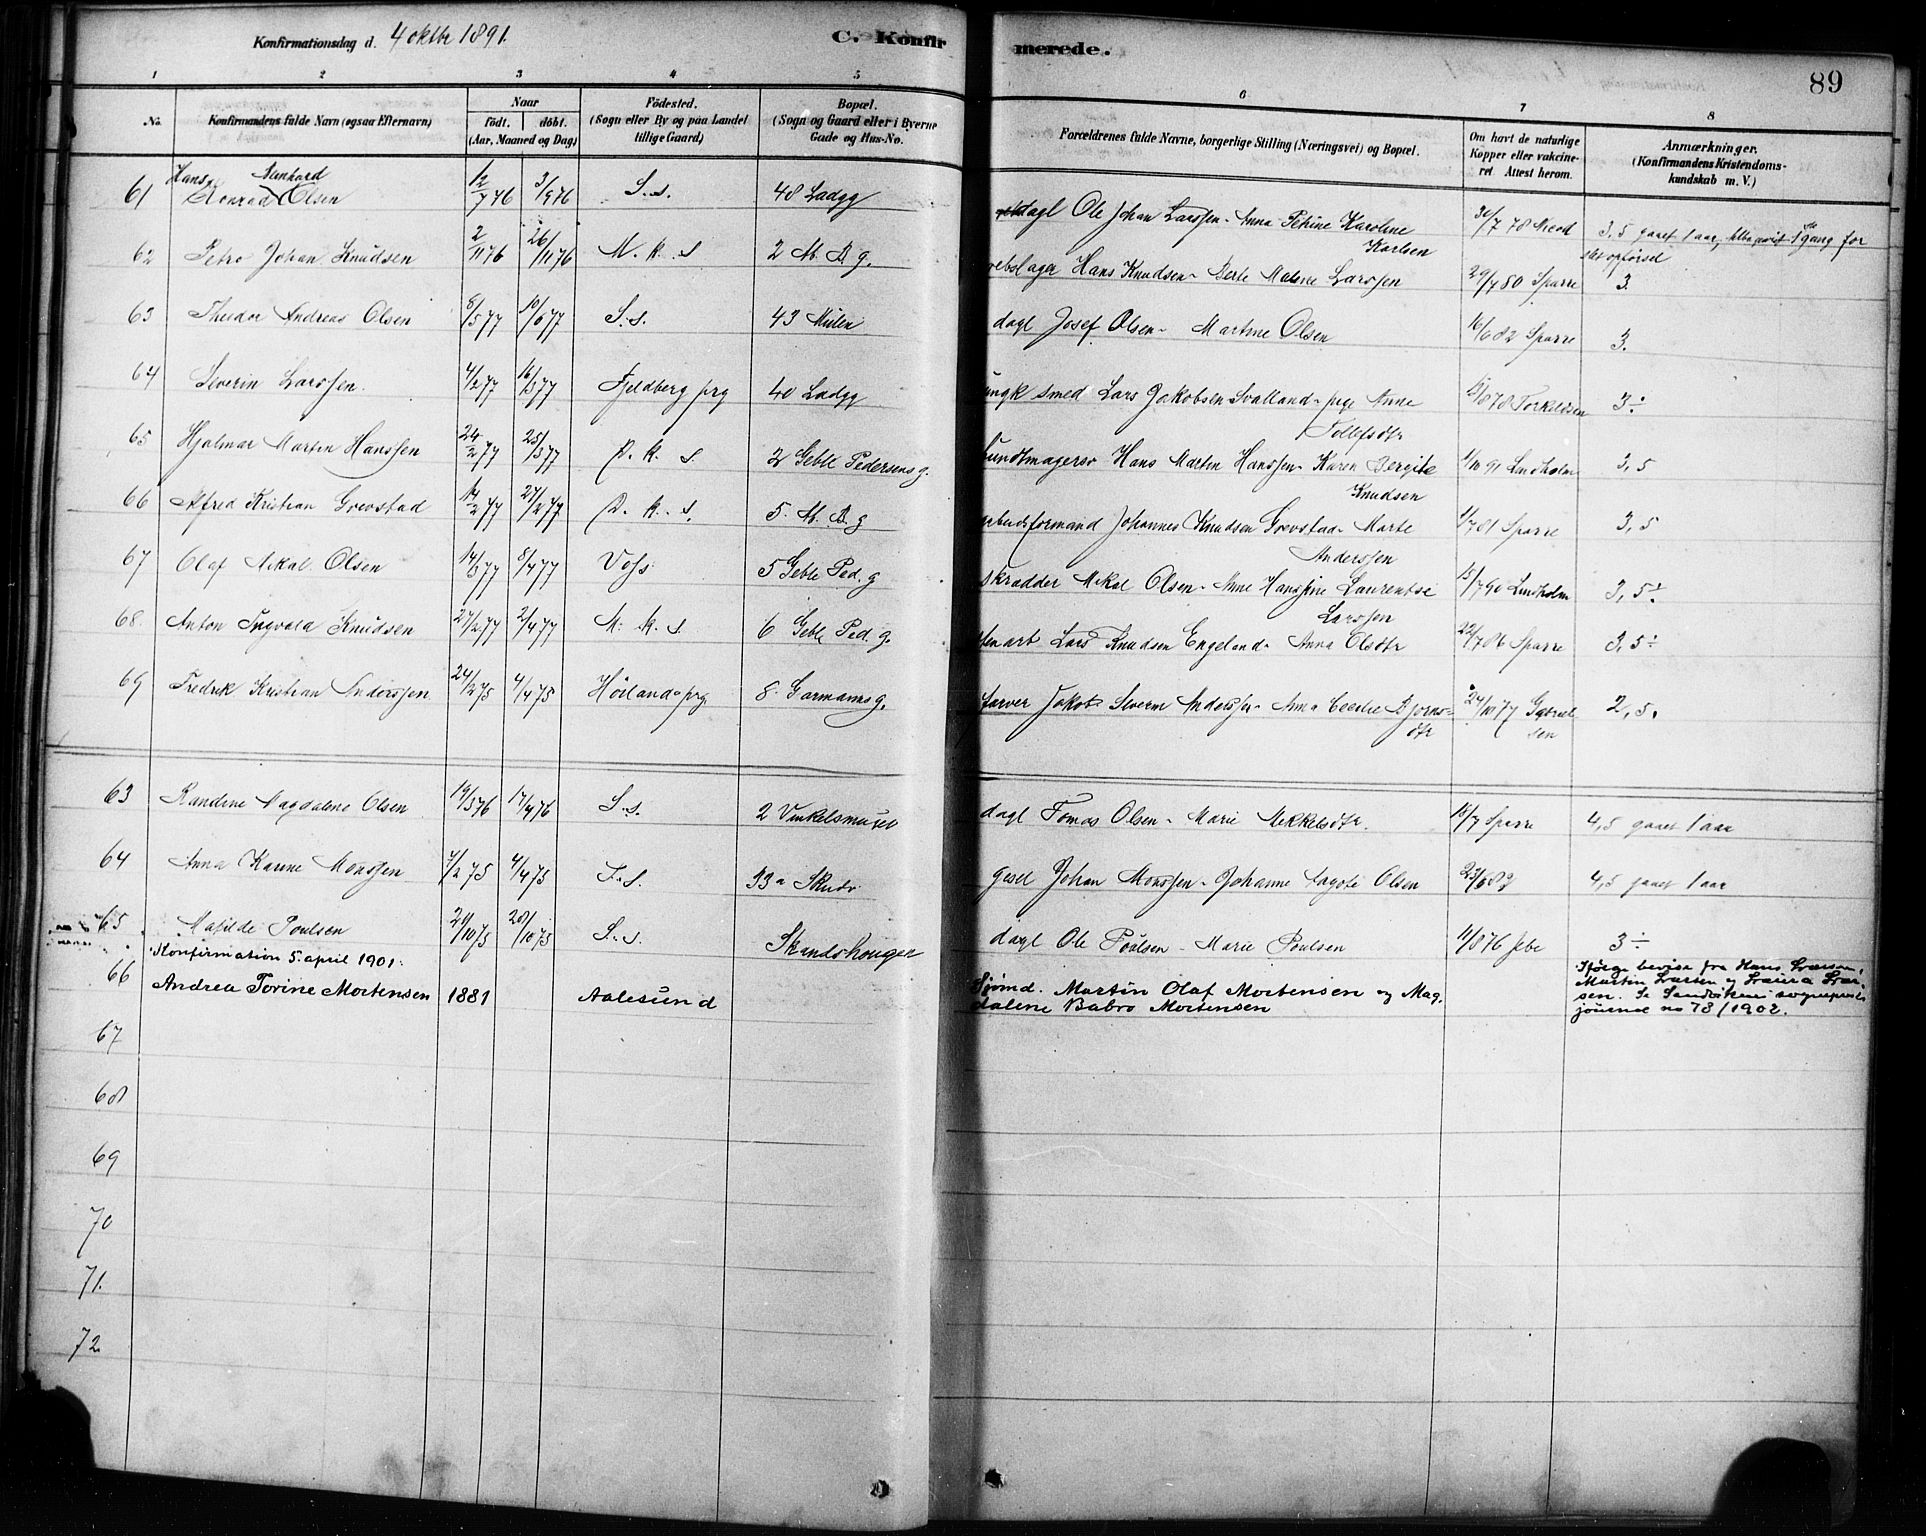 Konfirmationsdag d. 4 oktbr 1891.
C. Konfirmerede.
89
1 2 3 4 5 6 7 8
No.
Konfirmandens fulde Navn (ogsaa Efternavn)
Naar
födt. döbt.
(Aar, Maaned og Dag)
Födested.
(Sogn eller By og paa Landet
tillige Gaard)
Bopæl.
(Sogn og Gaard eller i Byerne
Gade og Hus-No.
Forældrenes fulde Navne, borgerlige Stilling (Næringsvei) og Bopæl.
Om havt de naturlige
Kopper eller vakcine-
ret. Attest herom.
Anmærkninger.
(Konfirmandens Kristendoms-
kundskab m. V.)
Hans
61 Konrad Olsen 12/7 76 3/9 76 S.s. 48 Ladgg dagl Ole Johan Larssen - Anna Petrine Karoline 3,5 gaaet 1 aar
Karlsen
62 Petro Johan Knudsen 2/11 76 26/11 76 N.k.s 2 M. B. g. Hans Knudsen - Berte Malene Larssen 29/7 80 Sparre 3.
63 Theodor Andreas Olsen 8/5 77 10/6 77 S.s. 43 Mulen dagl Josef Olsen - Martine Olsen 16/6 82 Sparre 3.
64 Severin Larssen 4/2 77 Fjeldberg prg 40 Ladgg smed Lars Jakobsen Svalland - pige Anne Torkeldsen 3÷
Tollefsdtr
65 Hjalmar Martin Hanssen 24/2 77 25/3 77 D.k.s. 2 Geble Pedersens g. Hans Martin Hanssen - Karen Bergite Lindholm 3,5
Knudsen
66 Alfred Kristian Grevstad 14/2 77 27/2 77 D.k.s. 5. M. B. g Johannes Knudsen Grevstad - Marte 1/7 81 Sparre 3,5
Anderssen
67 Olaf Mikal Olsen 14/3 77 8/4 77 Voss 5 Geble Ped. g skrædder Mikal Olsen - Anne Hanssine Laurentse 15/7 90 Lindholm 3,5÷
Larssen
68. Anton Ingvald Knudsen 27/2 77 2/4 77 N.k.s. 6 Geble Ped. g. Lars Knudsen Engeland - Anna Olsdtr 22/7 86 Sparre 3,5÷
69 Fredrik Kristian Anderssen 24/2 75 4/4 75 Höilands prg. 8. Garmannsg. farver Jakob Severin Anderssen - Anna Cecilie Bjorns- 24/10 77 Gabriel 2,5.
dtr sen
63 Randine Magdalene Olsen 19/3 76 17/4 76 S.s. 2 Vinkelsmuset dagl Tomas Olsen - Marie Mikkelsdtr. 18/7 Sparre 4,5 gaaet 1 aar
64 Anna Karine Monssen 7/2 75 4/4 75 33a Skudv. Johan Monssen - Johanne Olsen 23/6 82 4,5 gaaet 1 aar
65 Matilde Poulsen 21/10 75 28/10 75 S.s. Skandshougen dagl Ole Poulsen - Marie Poulsen 11/8 76 Jebe 3÷
Konfirmation 5. april 1901.
66 Andrea Torine Mortensen 1881 Aalesund Sjømd. Martin Olaf Mortensen og Mag-
dalene Babro Mortensen
Ifølge bevis fra Hans Larsen,
Martin Larsen og Laura Lar-
sen. Se Sandvikens sognepresti
journal no 78/1902.
67
68
69
70
71.
72.